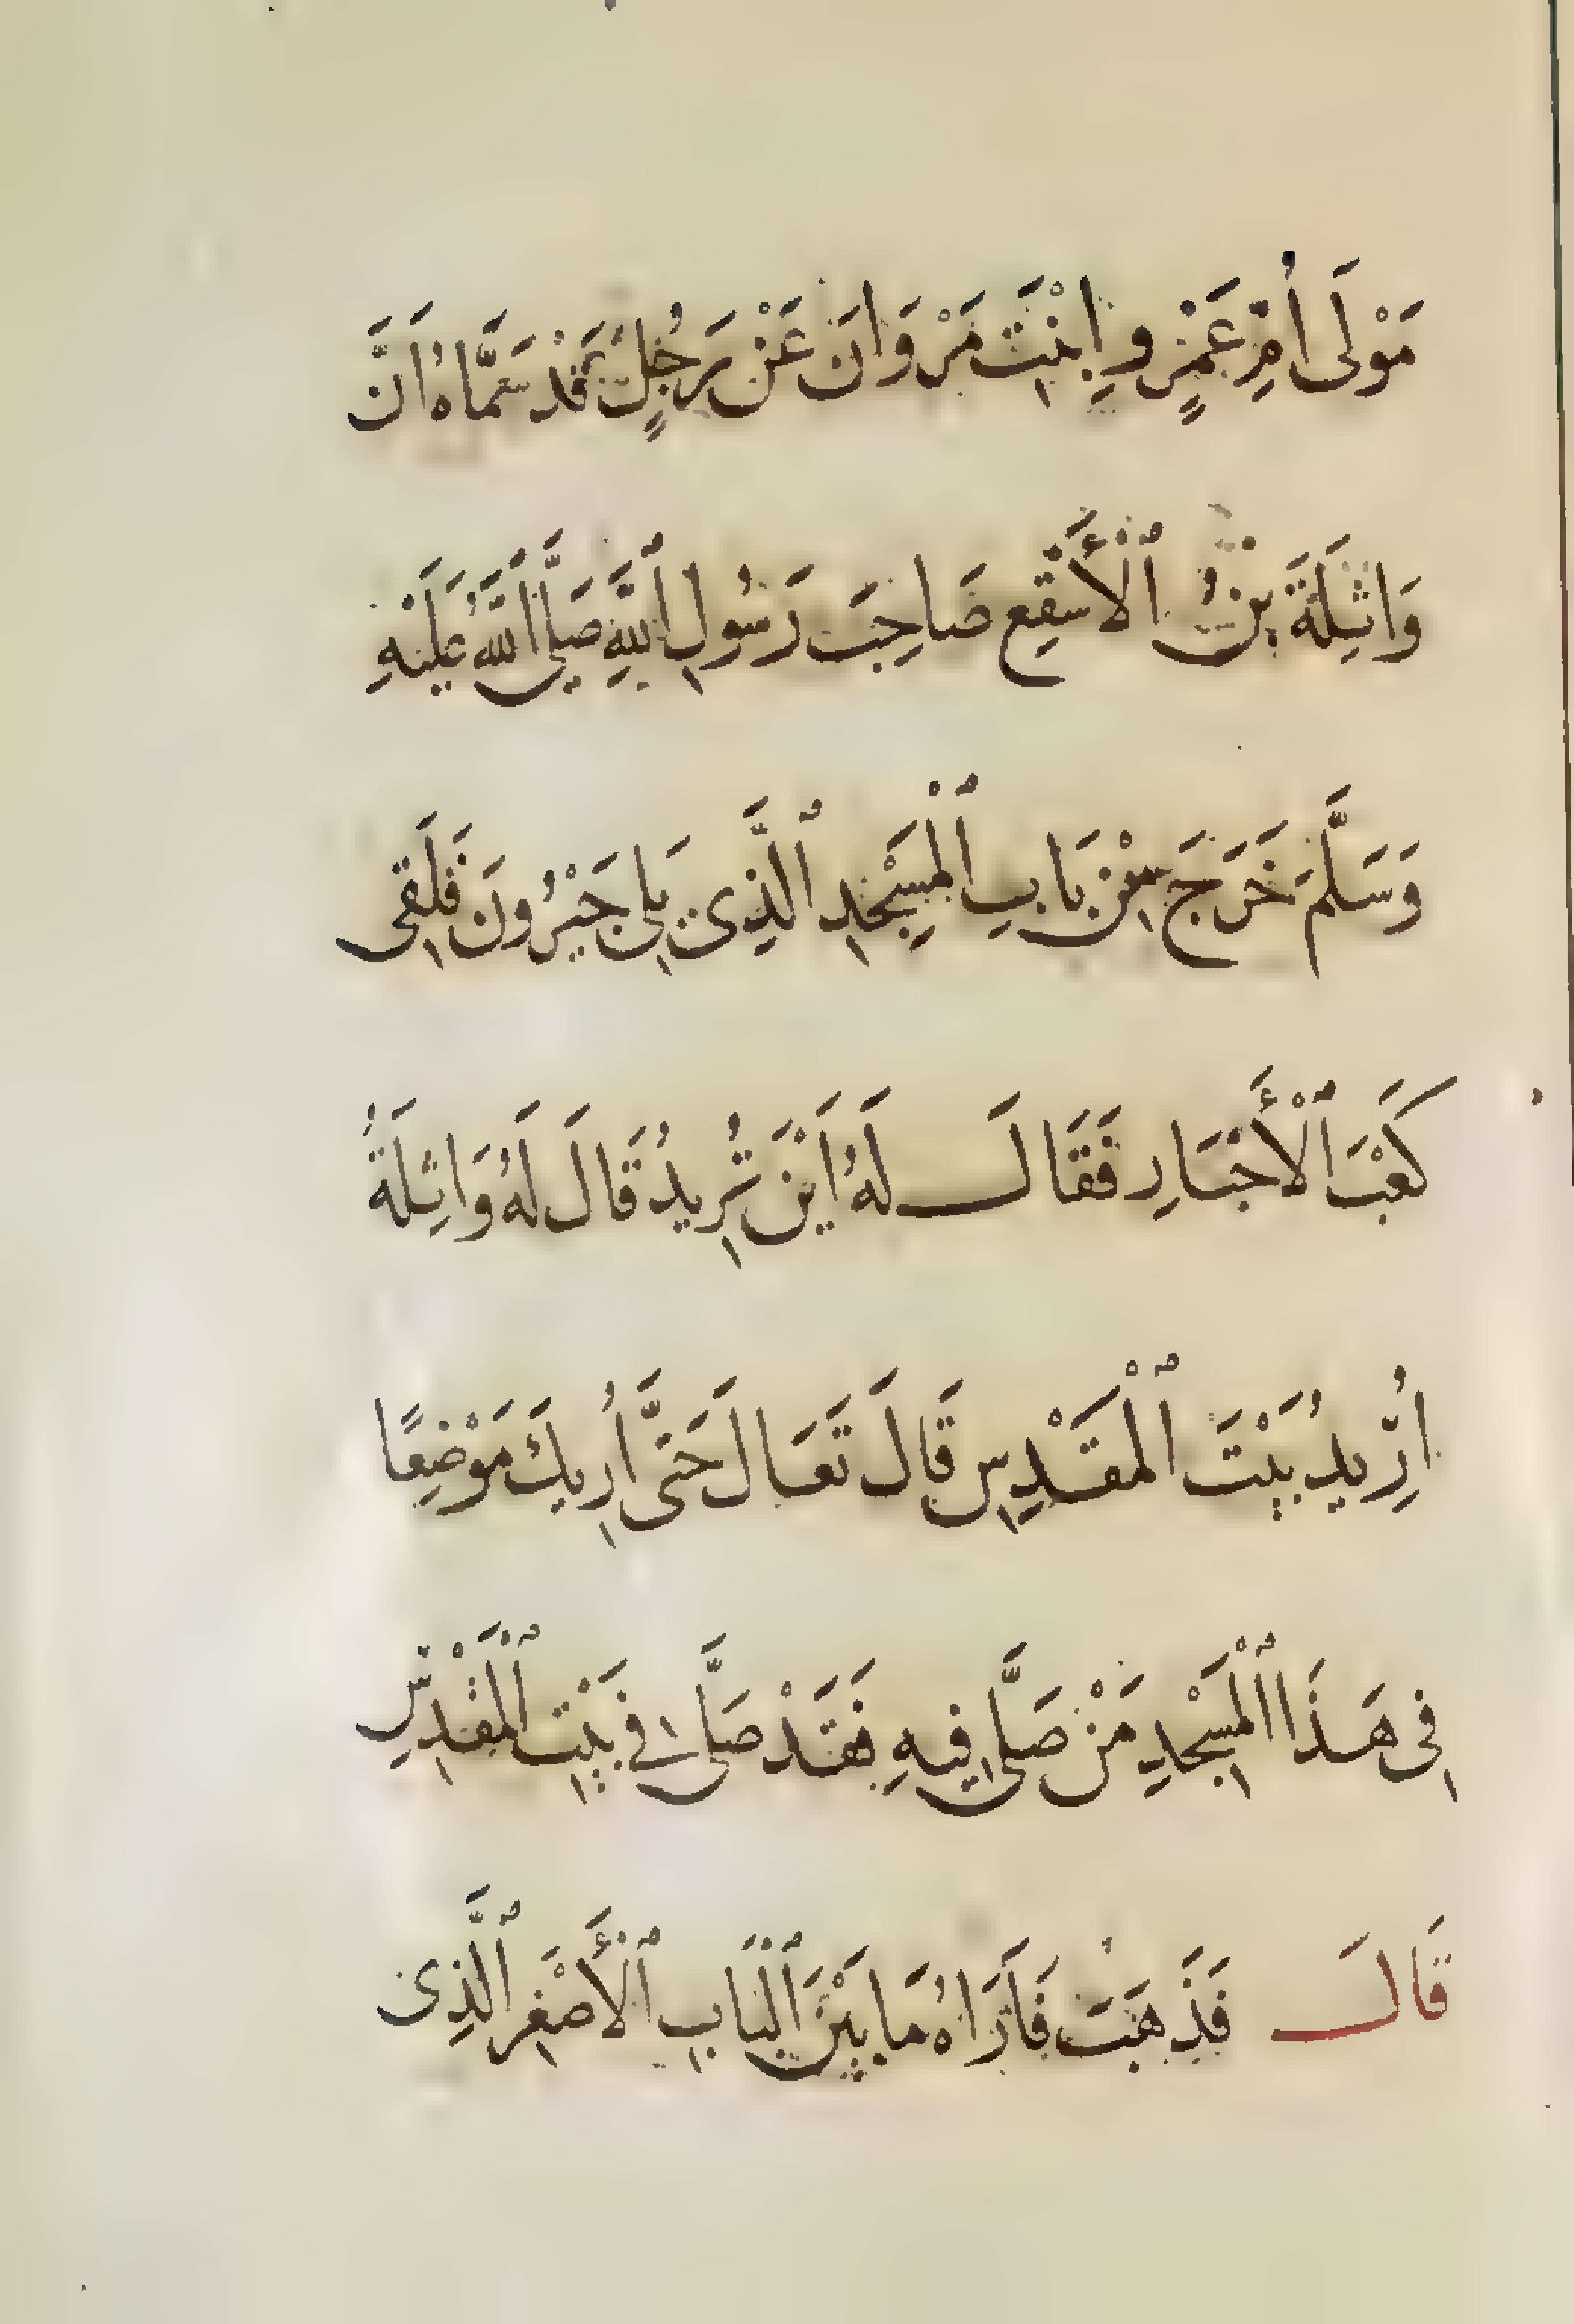 مَوْلَى أُمِّ عَمْرٍو اِبْنَتِ مَرْوَانَ عَنْ رَجُلٍ قَدْ سَمَّاهُ اَنَّ
وَاثِلَةَ بْنُ ٱلْأَسْقِعِ صَاحِبَ رَسُولِ ٱللَّهِ صَلَّى اللَّهُ عَلَيْهِ
وَسَلَّمَ خَرَجَ مِنْ بَابِ ٱلْمَسْجِدِ ٱلَّذِى يَلِى جَيْرُونَ فَلَقِىَ
كَعْبَ ٱلْأَحْبَارِ فَقَالَ لَهُ اَيْنَ تُرِيدُ قَالَ لَهُ وَاثِلَةُ
اُرِيدُ بَيْتَ ٱلْمَقْدِسِ قَالَ تَعَالَ حَتَّى اُرِيكَ مَوْضِعًا
فِى هَذَا ٱلْمَسْجِدِ مَنْ صَلَّى فِيهِ فَقَدْ صَلَّى فِى بَيْتِ ٱلْمَقْدِسِ
قَالَ فَذَهَبَ فَاَرَاهُ مَا بَيْنَ ٱلْبَابِ ٱلْأَصْغَرِ ٱلَّذِى